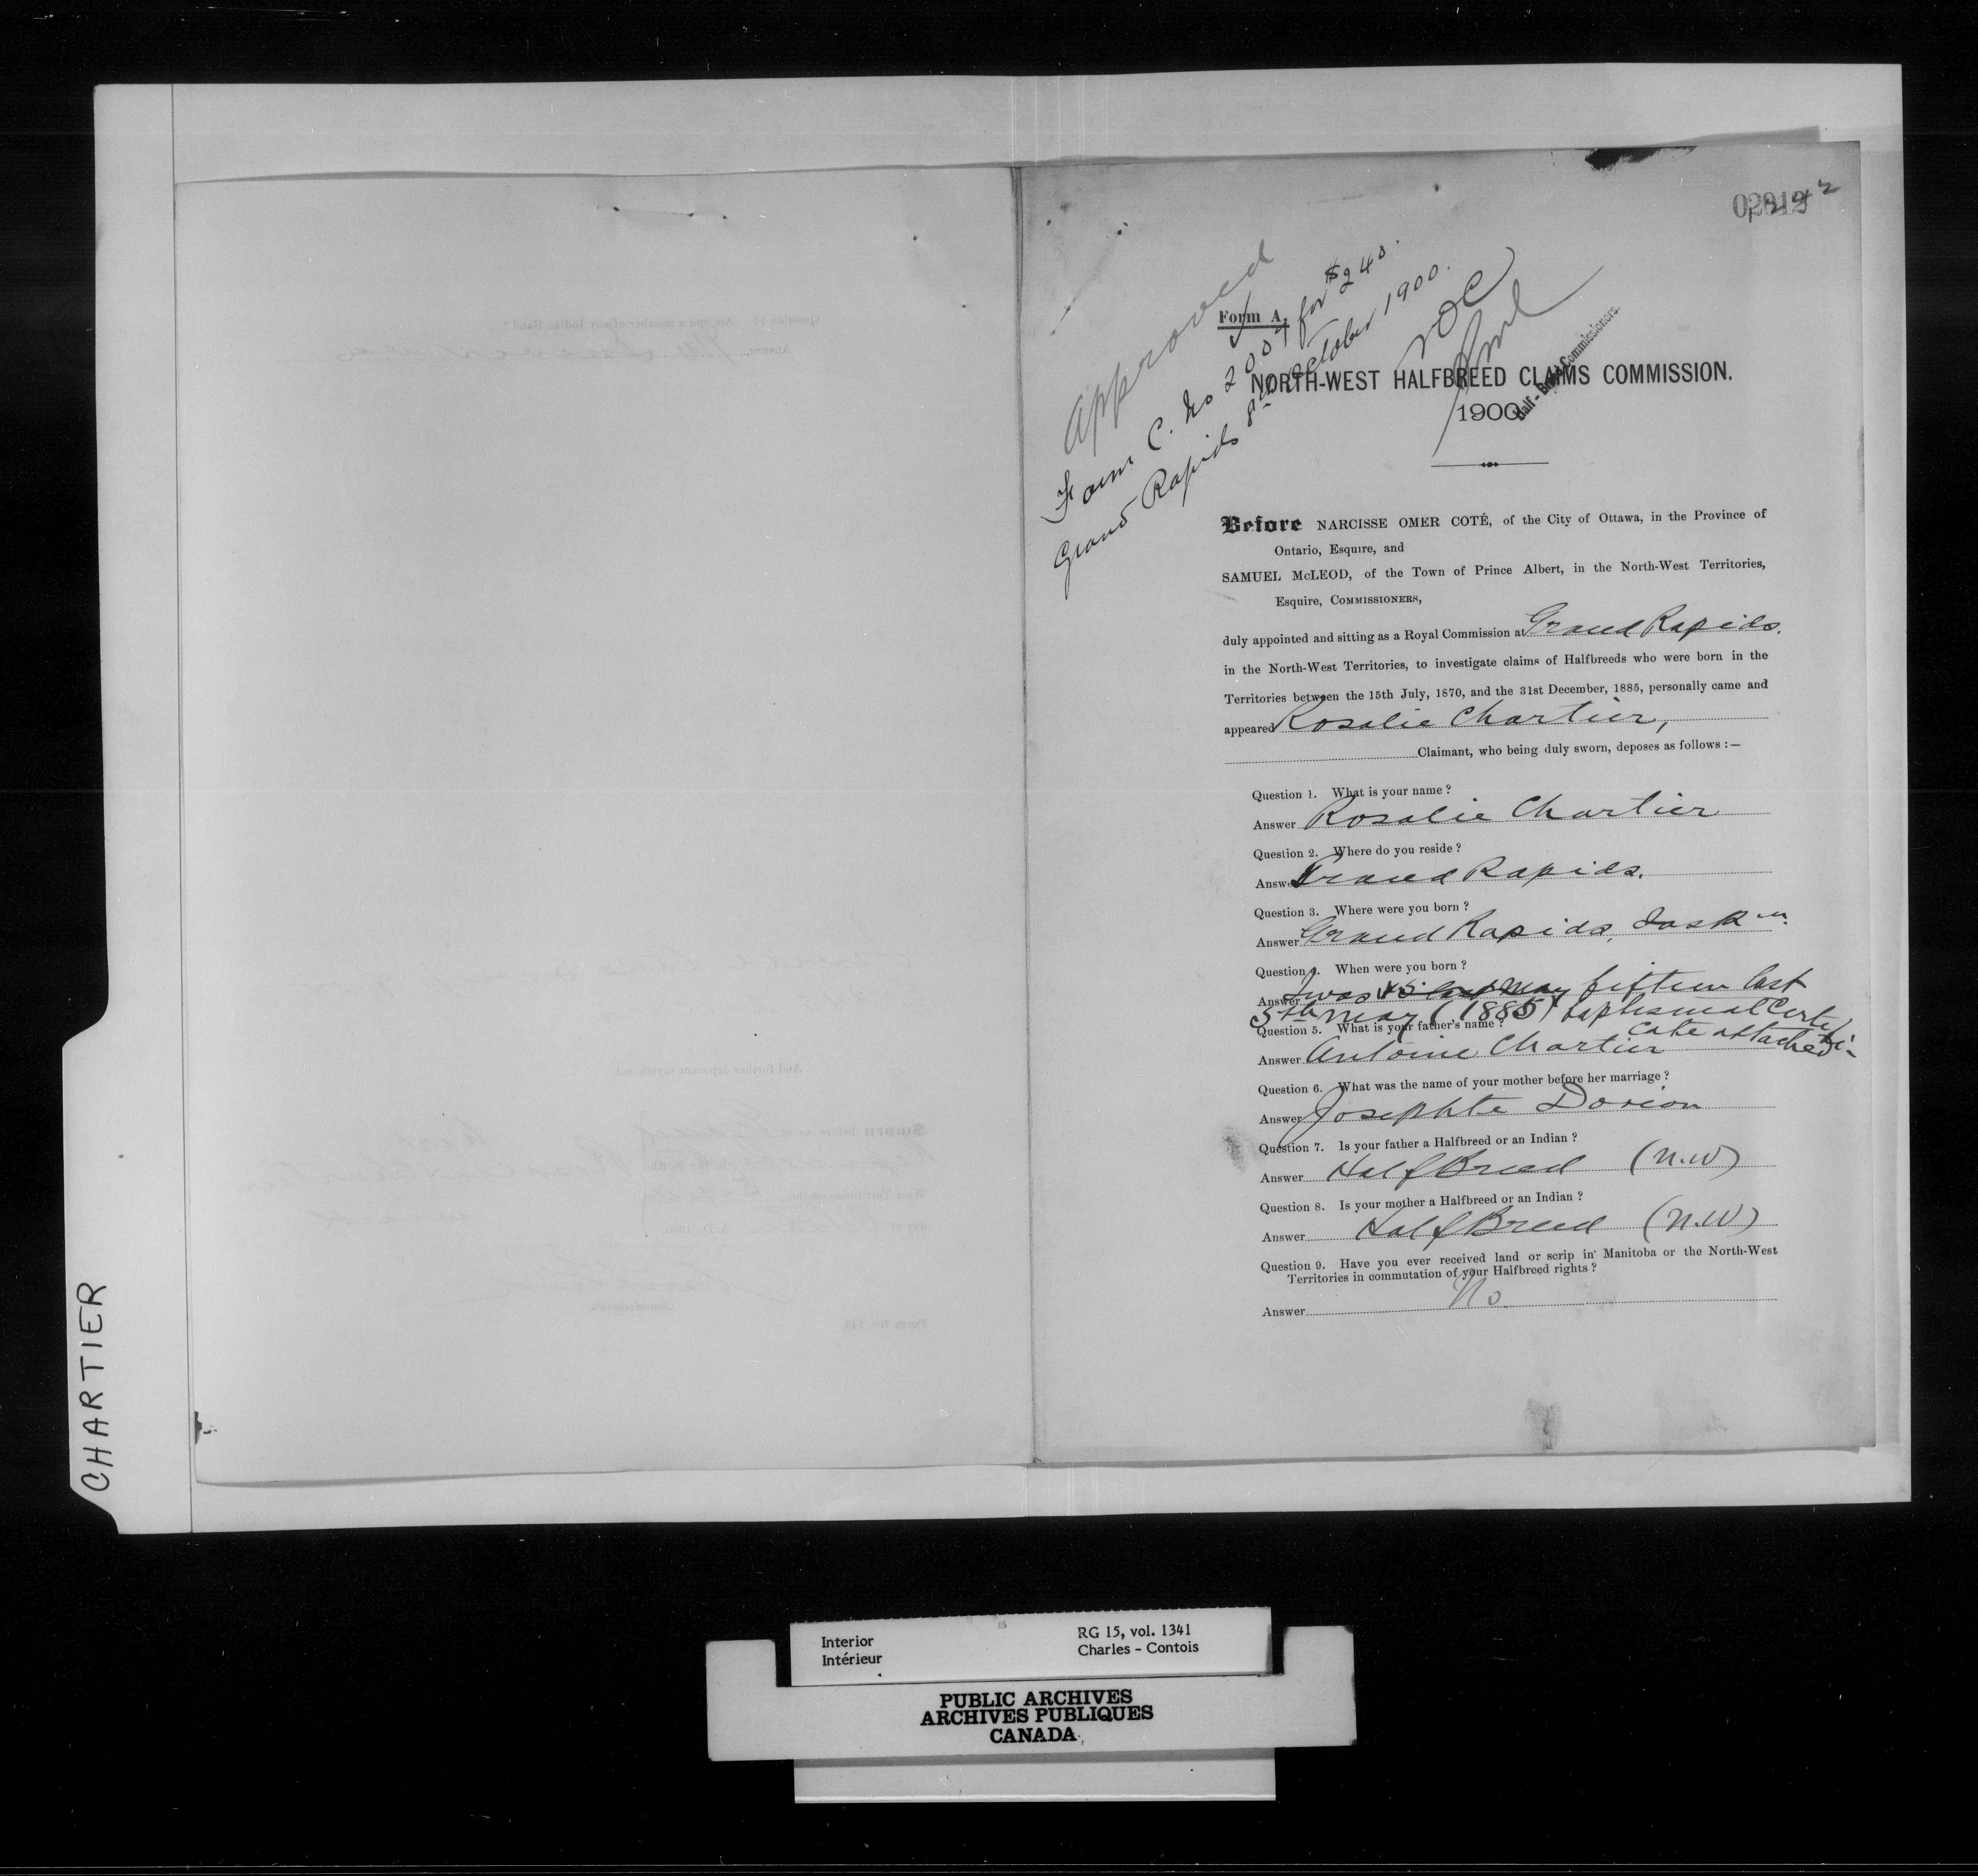 CHARTIER
Approved
Form C. No 2007 for $240.
Grand Rapids 8th October 1900.
NOC
Form A.
NORTH-WEST HALFBREED CLAIMS COMMISSION.
1900
Half-Breed Commissioners.
Before NARCISSE OMER COTÉ, of the City of Ottawa, in the Province of
Ontario, Esquire, and
SAMUEL McLEOD, of the Town of Prince Albert, in the North-West Territories,
Esquire, COMMISSIONERS,
duly appointed and sitting as a Royal Commission at Grand Rapids.
in the North-West Territories, to investigate claims of Halfbreeds who were born in the
Territories between the 15th July, 1870, and the 31st December, 1885, personally came and
appeared Rosalie Chartier,
Claimant, who being duly sworn, deposes as follows :—
Question 1. What is your name ?
Answer Rosalie Chartier
Question 2. Where do you reside ?
Answer Grand Rapids.
Question 3. Where were you born ?
Answer Grand Rapids, Sask n.
Question 4. When were you born ?
Answer I was 15 last May fifteen last
5th May (1885) baptismal Certifi-
cate attached
Question 5. What is your father's name ?
Answer Antoine Chartier
Question 6. What was the name of your mother before her marriage ?
Answer Josephte Dorion
Question 7. Is your father a Halfbreed or an Indian ?
Answer Half Breed (N.W)
Question 8. Is your mother a Halfbreed or an Indian ?
Answer Half Breed (N.W)
Question 9. Have you ever received land or scrip in Manitoba or the North-West
Territories in commutation of your Halfbreed rights ?
Answer No.
Interior
Intérieur
RG 15, vol. 1341
Charles - Contois
PUBLIC ARCHIVES
ARCHIVES PUBLIQUES
CANADA